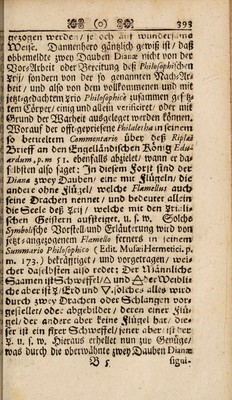 (o) 393
gezogen werden / jedoch auf wunderſame
Weiſe. Dannenhero gäntzlich gewiß iſt / daß
obbemeldte zwey Dauben Dianæ nicht von der
Vor-Arbeit oder Bereitung deß Philoſophiſchen
♁rij / ſondern von der ſo genannten Nach-Ar-
beit / und alſo von dem vollkommenen und mit
jetztgedachtem ♁rio Philoſophicè zuſammen geſetz-
tem Cörper / einig und allein verificiret / oder mit
Grund der Warheit außgeleget werden können.
Worauf der offt-geprieſene Philaletha in ſeinem
ſo betiteltem Commentario über deß Riplæi
Brieff an den Engelländiſchen König Edu-
ardum, p. m 51. ebenfalls abzielet / wann er da-
ſelbſten alſo ſaget: In dieſem Forſt ſind der
Diana zwey Dauben / eine mit Flügeln / die
andere ohne Flügel / welche Flamellus auch
ſeine Drachen nennet / und bedeutet allein
die Seele deß ☿rij / welche mit den Metalli-
ſchen Geiſtern aufſteiget, u. ſ. w. Solche
Symboliſche Vorſtell-und Erläuterung wird von
jetzt-angezogenem Flamello ferners in ſeinem
Summario Philoſophico (Edit. Muſæi Hermetici, p.
m. 173.) bekräfftiget / und vorgetragen / wei-
cher daſelbſten alſo redet: Der Männliche
Saamen iſt Schweffel / △ und △ der Weibli-
che aber iſt ☿ / Erd und ▽ / ſolches alles wird
durch zwey Drachen oder Schlangen vor-
geſtellet / oder abgebildet / deren einer Flü-
gel / der andere aber keine Flügel hat / die-
ſer iſt ein fixer Schweffel / jener aber iſt der
☿. u. ſ. w. Hieraus erhellet nun zur Genüge /
was durch die oberwähnte zwey Dauben Dianæ
B 5 ſigni-